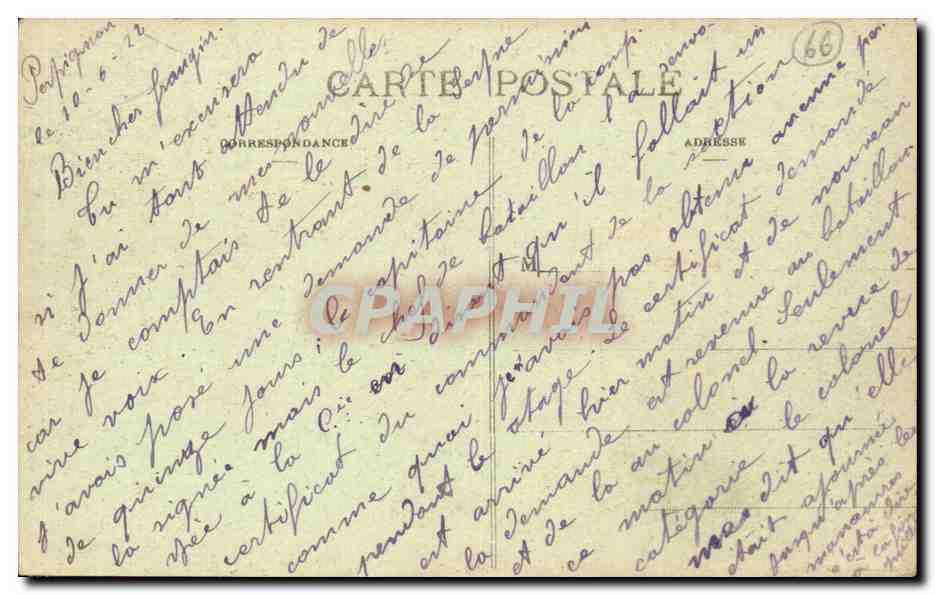 Perpignan
le 10-6-22
66
CARTE POSTALE
CORRESPONDANCE
ADRESSE
M
CPAPHIL
Bien cher frangin.
Tu m'excusera
si j'ai tant attendu de
te donner de mes nouvelles
car je comptais te le dire de
vive voix. En rentrant de la Serpne
j'avais posé une demande de permission
de quinze jours; le capitaine de la comp.
la signée mais le chef de bataillon l'a renvo-
yée à la Cie en disant qu'il fallait un
certificat du commandant de la section
comme quoi je n'avais pas obtenu aucune per.
pendant le stage. Le certificat demandé
est arrivé hier matin et de nouveau
la demande est revenue au bataillon
et de la au colonel. Seulement
ce matin à la revue de
catégorie le colonel
nous dit qu'elle
était ajournée
jusqu'après les
manœuvres
c'est à dire